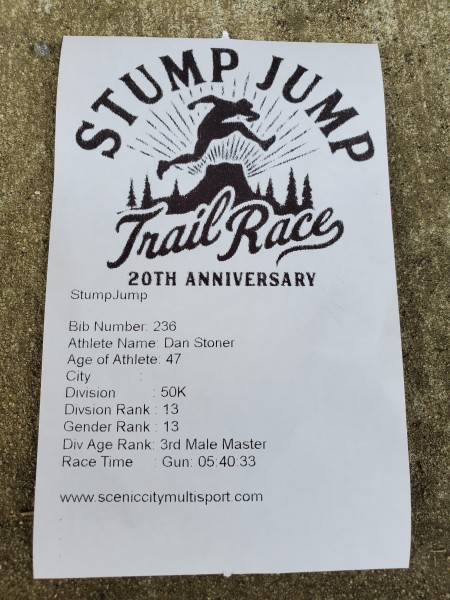 STUMP JUMP
Trail Race
20TH ANNIVERSARY
StumpJump
Bib Number: 236
Athlete Name: Dan Stoner
Age of Athlete: 47
City :
Division : 50K
Divsion Rank : 13
Gender Rank : 13
Div Age Rank: 3rd Male Master
Race Time : Gun: 05:40:33
www.sceniccitymultisport.com